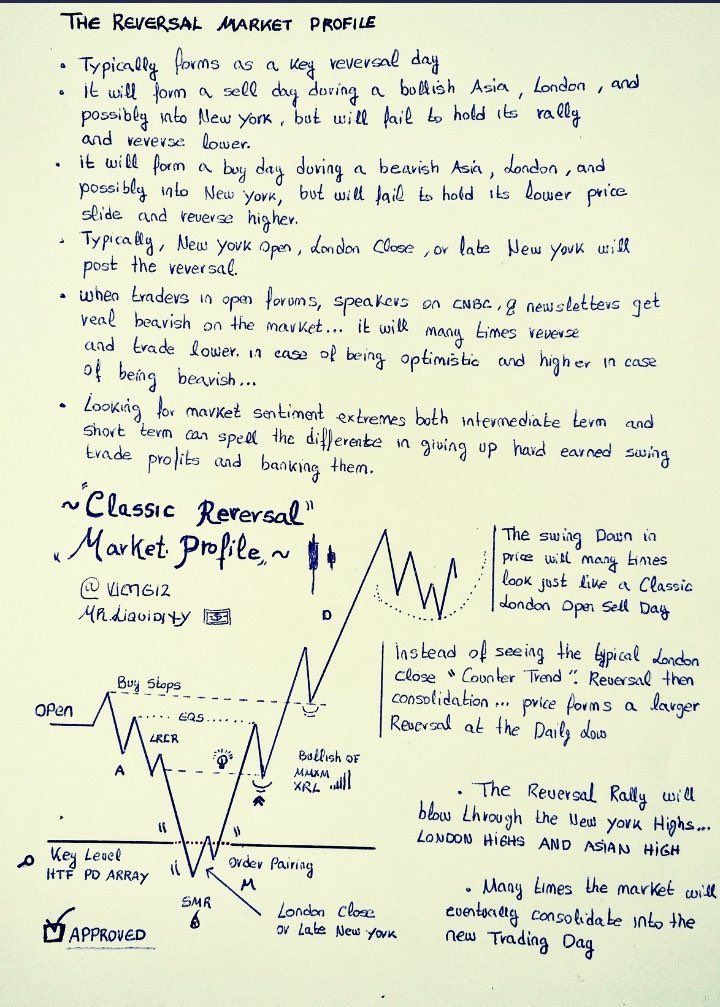 THE REVERSAL MARKET PROFILE
• Typically forms as a key reversal day
• It will form a sell day during a bullish Asia, London, and
possibly into New York, but will fail to hold its rally
and reverse lower.
• it will form a buy day during a bearish Asia, London, and
possibly into New York, but will fail to hold its lower price
slide and reverse higher.
• Typically, New York Open, London Close, or late New York will
post the reversal.
• when traders in open forums, speakers on CNBC, & newsletters get
real bearish on the market... it will many times reverse
and trade lower. in case of being optimistic and higher in case
of being bearish...
• Looking for market sentiment extremes both intermediate term and
short term can spell the difference in giving up hard earned swing
trade profits and banking them.
~"Classic Reversal"
Market Profile ~
MR. LIQUIDITY
D
The swing Down in
price will many times
look just like a Classic
London Open Sell Day
instead of seeing the typical London
Close "Counter Trend". Reversal then
consolidation... price forms a larger
Reversal at the Daily Low
Buy Stops
OPEN
EQS
LRLR
A
Bullish OF
MMXM
XRL
• The Reversal Rally will
blow through the New York Highs...
LONDON HIGHS AND ASIAN HIGH
Key Level
HTF PD ARRAY
Order Pairing
M
SMR
London Close
or Late New York
• Many times the market will
eventually consolidate into the
new Trading Day
APPROVED